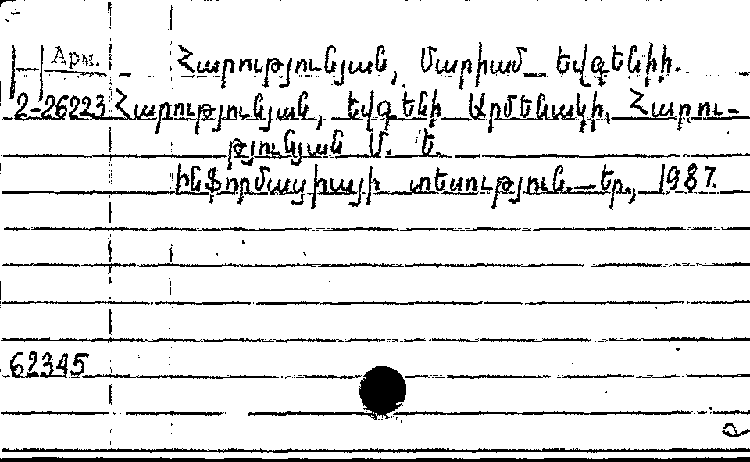 Арм. Հարությունյան, Մարիամ Եվգենիի.
2-26223 Հարությունյան, Եվգենի Արմենակի, Հարու-
թյունյան Մ. Ե.
Ինֆորմացիայի տեսություն.—Եր., 1987.
62345